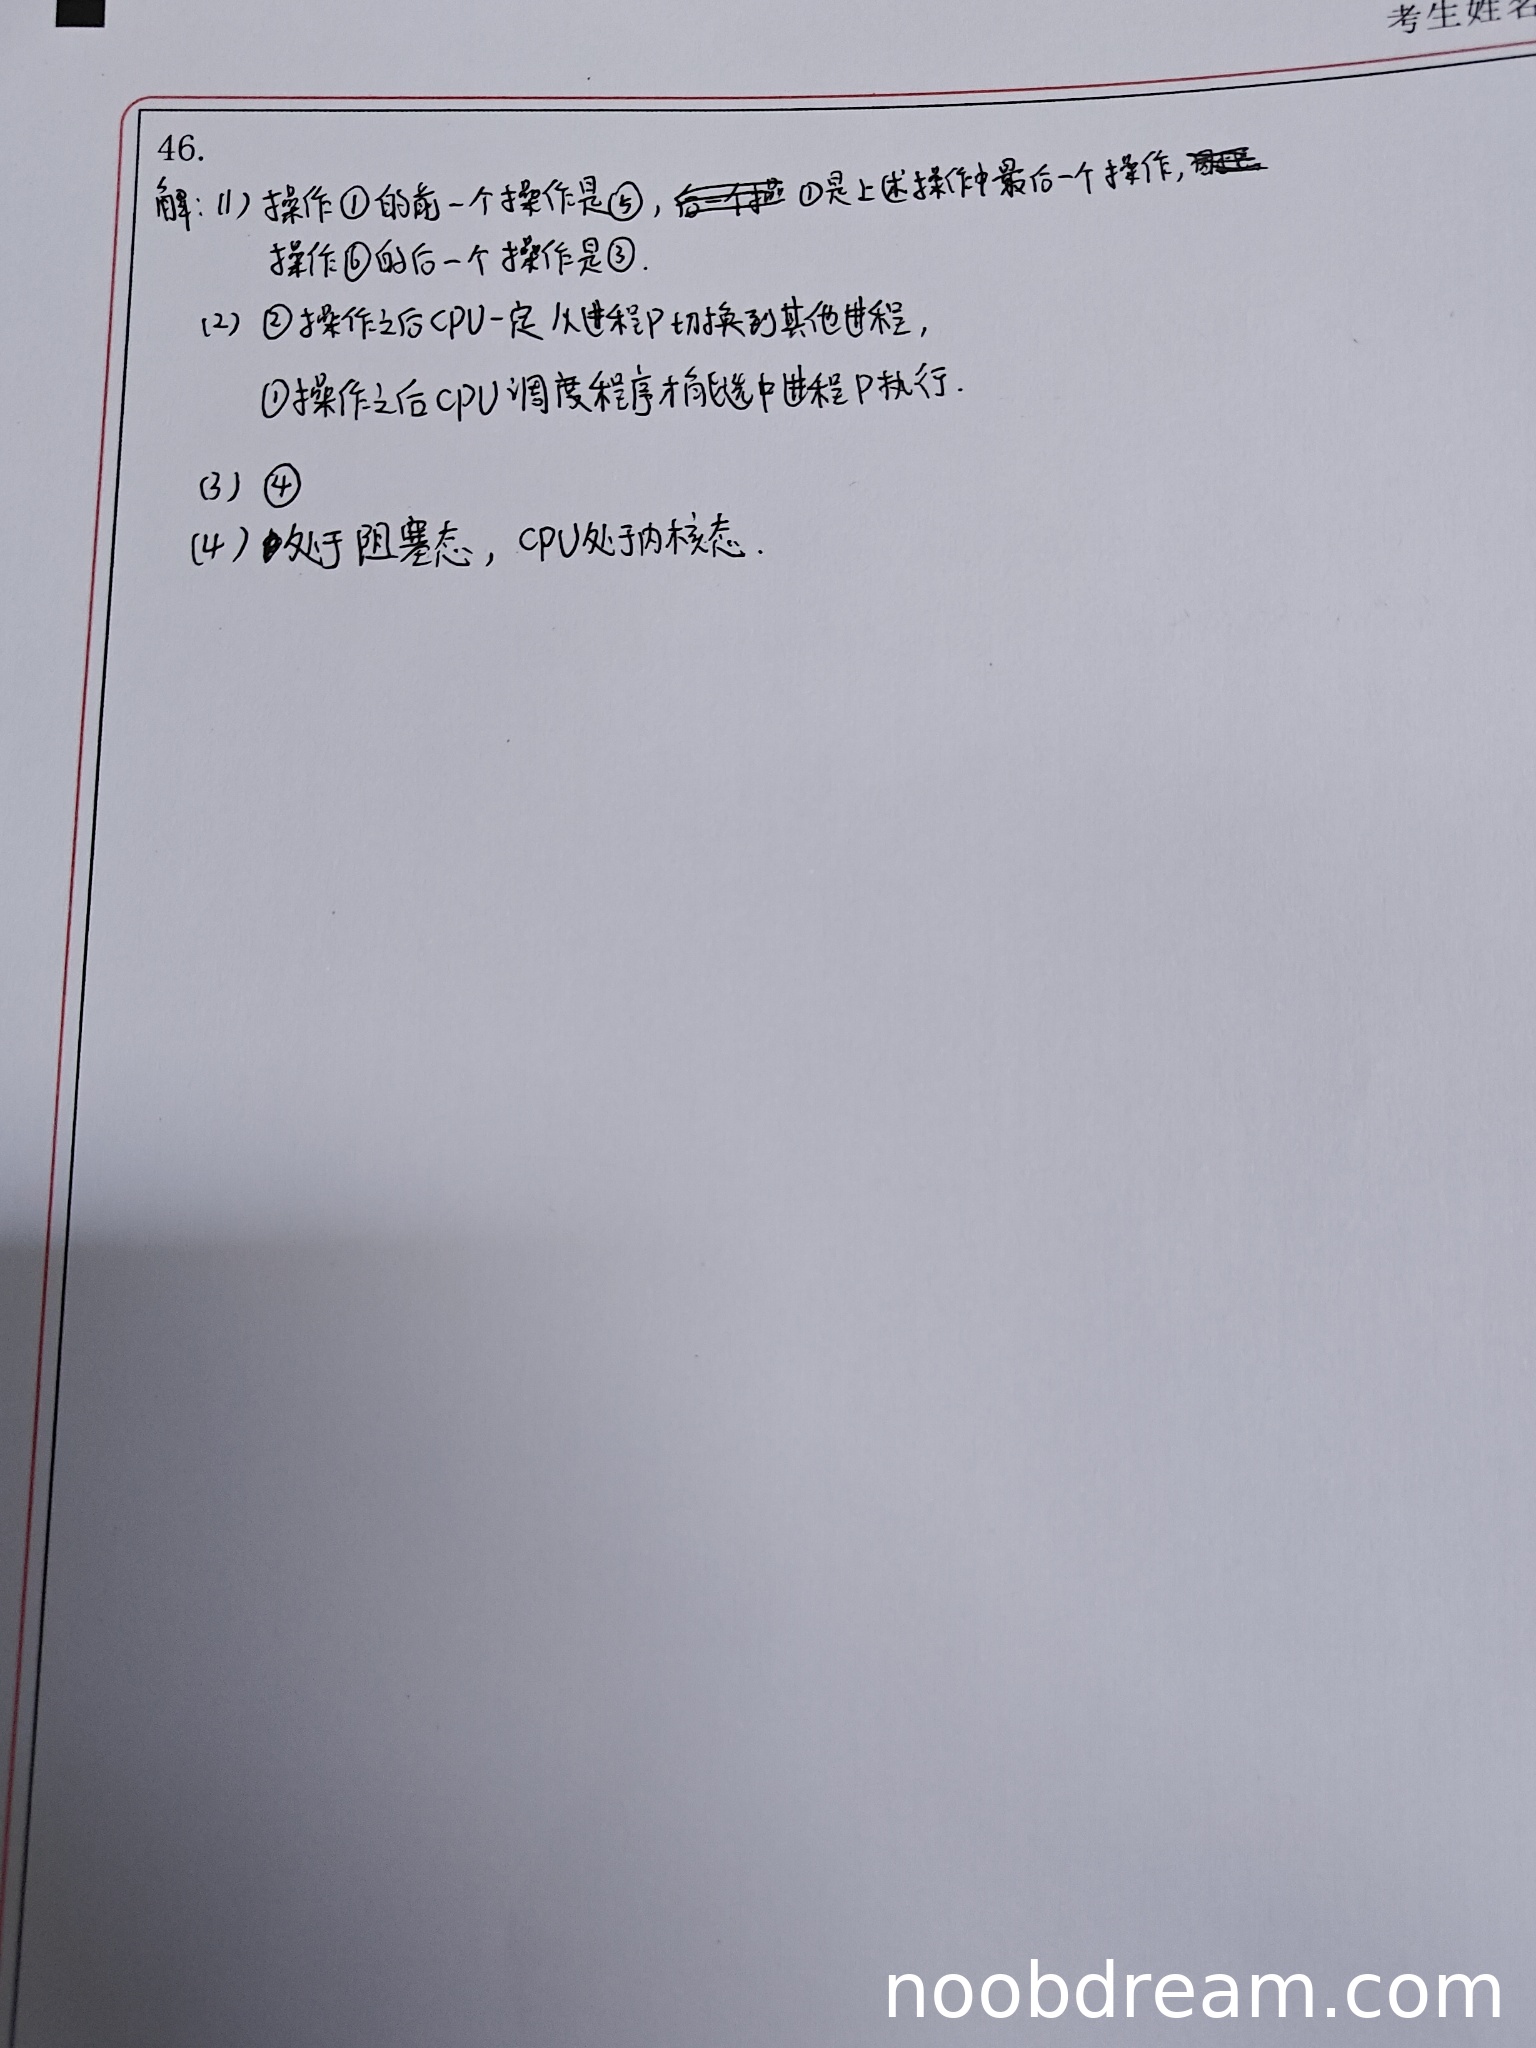 考生姓名
46.
解：(1) 操作①的前一个操作是⑤, ①是上述操作中最后一个操作,
操作⑥的后一个操作是③.
(2) ②操作之后CPU一定从进程P切换到其他进程,
①操作之后CPU调度程序才能选中进程P执行.
(3) ④
(4) 处于阻塞态, CPU处于内核态.
noobdream.com